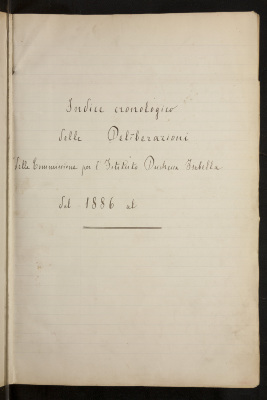 Indice cronologico
delle Deliberazioni
della Commissione per l'Istituto Duchessa Isabella
dal 1886 al